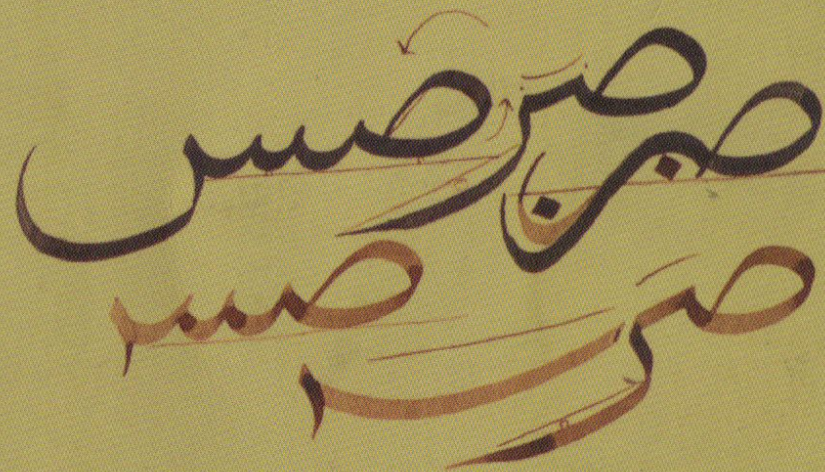 صر صر صس
صر صس